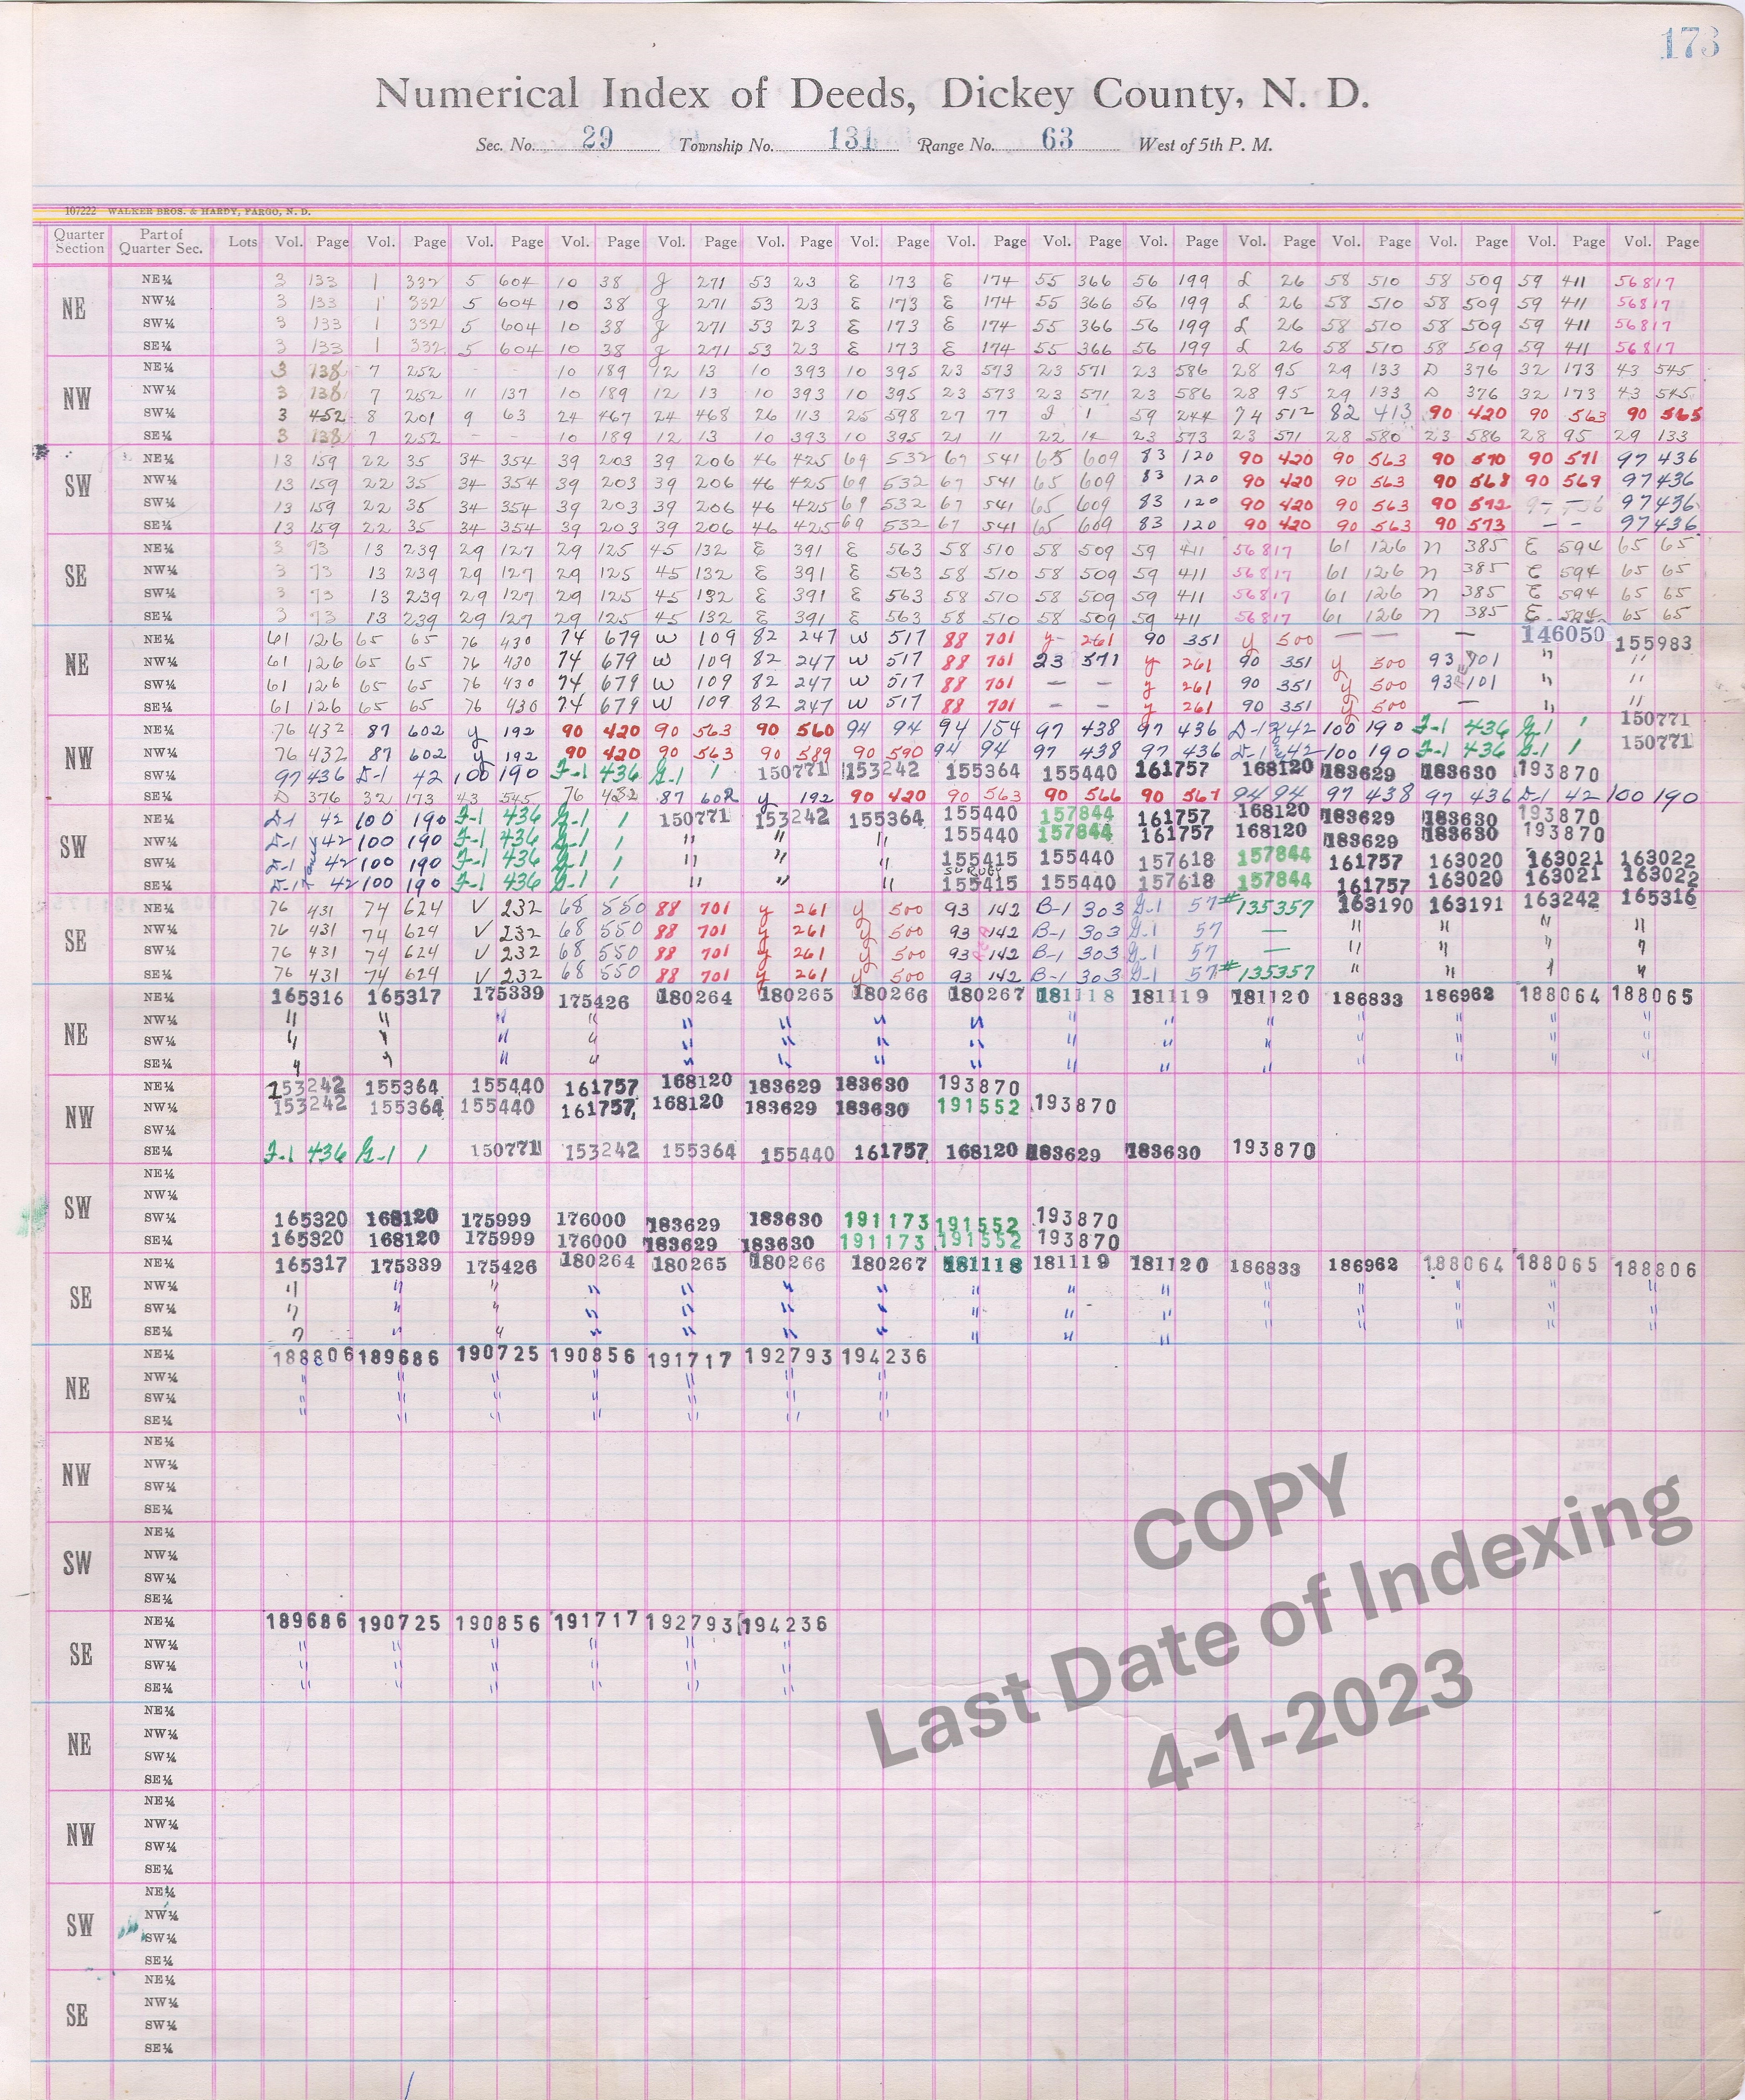 173
Numerical Index of Deeds, Dickey County, N. D.
Sec. No. 29 Township No. 131 Range No. 63 West of 5th P. M.
107222 WALKER BROS. & HARDY, FARGO, N. D.
Quarter Section Part of Quarter Sec. Lots Vol. Page Vol. Page Vol. Page Vol. Page Vol. Page Vol. Page Vol. Page Vol. Page Vol. Page Vol. Page Vol. Page Vol. Page Vol. Page Vol. Page Vol. Page
NE
NE¼ 3 133 1 332 5 604 10 38 g 271 53 23 E 173 E 174 55 366 56 199 L 26 58 510 58 509 59 411 56817
NW¼ 3 133 1 332 5 604 10 38 g 271 53 23 E 173 E 174 55 366 56 199 L 26 58 510 58 509 59 411 56817
SW¼ 3 133 1 332 5 604 10 38 g 271 53 23 E 173 E 174 55 366 56 199 L 26 58 510 58 509 59 411 56817
SE¼ 3 133 1 332 5 604 10 38 g 271 53 23 E 173 E 174 55 366 56 199 L 26 58 510 58 509 59 411 56817
NW
NE¼ 3 138 7 252 - - 10 189 12 13 10 393 10 395 23 573 23 571 23 586 28 95 29 133 D 376 32 173 43 545
NW¼ 3 138 7 252 11 137 10 189 12 13 10 393 10 395 23 573 23 571 23 586 28 95 29 133 D 376 32 173 43 545
SW¼ 3 452 8 201 9 63 24 467 24 468 26 113 25 598 27 77 I 1 59 244 74 512 82 413 90 420 90 563 90 565
SE¼ 3 138 7 252 - - 10 189 12 13 10 393 10 395 21 11 22 14 23 573 23 571 28 580 23 586 28 95 29 133
SW
NE¼ 13 159 22 35 34 354 39 203 39 206 46 425 69 532 67 541 65 609 83 120 90 420 90 563 90 570 90 571 97 436
NW¼ 13 159 22 35 34 354 39 203 39 206 46 425 69 532 67 541 65 609 83 120 90 420 90 563 90 568 90 569 97 436
SW¼ 13 159 22 35 34 354 39 203 39 206 46 425 69 532 67 541 65 609 83 120 90 420 90 563 90 572 97 436
SE¼ 13 159 22 35 34 354 39 203 39 206 46 425 69 532 67 541 65 609 83 120 90 420 90 563 90 573 - - 97 436
SE
NE¼ 3 73 13 239 29 127 29 125 45 132 E 391 E 563 58 510 58 509 59 411 56817 61 126 n 385 E 594 65 65
NW¼ 3 73 13 239 29 127 29 125 45 132 E 391 E 563 58 510 58 509 59 411 56817 61 126 n 385 E 594 65 65
SW¼ 3 73 13 239 29 127 29 125 45 132 E 391 E 563 58 510 58 509 59 411 56817 61 126 n 385 E 594 65 65
SE¼ 3 73 13 239 29 127 29 125 45 132 E 391 E 563 58 510 58 509 59 411 56817 61 126 n 385 E 594 65 65
NE
NE¼ 61 126 65 65 76 430 74 679 W 109 82 247 W 517 88 701 y 261 90 351 y 500 — — 146050 155983
NW¼ 61 126 65 65 76 430 74 679 W 109 82 247 W 517 88 701 23 571 y 261 90 351 y 500 93 101 " "
SW¼ 61 126 65 65 76 430 74 679 W 109 82 247 W 517 88 701 - - y 261 90 351 y 500 93 101 " "
SE¼ 61 126 65 65 76 430 74 679 W 109 82 247 W 517 88 701 - - y 261 90 351 y 500 — " "
NW
NE¼ 76 432 87 602 y 192 90 420 90 563 90 560 94 94 94 154 97 438 97 436 D-1 42 100 190 F-1 436 G-1 1 150771
NW¼ 76 432 87 602 y 192 90 420 90 563 90 589 90 590 94 94 97 438 97 436 D-1 42 100 190 F-1 436 G-1 1 150771
SW¼ 97 436 D-1 42 100 190 F-1 436 G-1 1 150771 153242 155364 155440 161757 168120 183629 183630 193870
SE¼ D 376 32 173 43 545 76 432 87 602 y 192 90 420 90 563 90 566 90 567 94 94 97 438 97 436 D-1 42 100 190
SW
NE¼ D-1 42 100 190 F-1 436 G-1 1 150771 153242 155364 155440 157844 161757 168120 183629 183630 193870
NW¼ D-1 42 100 190 F-1 436 G-1 1 " " " 155440 157844 161757 168120 183629 183630 193870
SW¼ D-1 42 100 190 F-1 436 G-1 1 " " " 155415 155440 157618 157844 161757 163020 163021 163022
SE¼ D-1 42 100 190 F-1 436 G-1 1 " " " 155415 155440 157618 157844 161757 163020 163021 163022
SE
NE¼ 76 431 74 624 V 232 68 550 88 701 y 261 y 500 93 142 B-1 303 G-1 57 #135357 163190 163191 163242 165316
NW¼ 76 431 74 624 V 232 68 550 88 701 y 261 y 500 93 142 B-1 303 G-1 57 — " " " "
SW¼ 76 431 74 624 V 232 68 550 88 701 y 261 y 500 93 142 B-1 303 G-1 57 — " " " "
SE¼ 76 431 74 624 V 232 68 550 88 701 y 261 y 500 93 142 B-1 303 G-1 57 #135357 " " " "
NE
NE¼ 165316 165317 175339 175426 180264 180265 180266 180267 181118 181119 181120 186833 186962 188064 188065
NW¼ " " " " " " " " " " " " " " "
SW¼ " " " " " " " " " " " " " " "
SE¼ " " " " " " " " " " "
NW
NE¼ 153242 155364 155440 161757 168120 183629 183630 193870
NW¼ 153242 155364 155440 161757 168120 183629 183630 191552 193870
SW¼
SE¼ F-1 436 G-1 1 150771 153242 155364 155440 161757 168120 183629 183630 193870
SW
NE¼
NW¼
SW¼ 165320 168120 175999 176000 183629 183630 191173 191552 193870
SE¼ 165320 168120 175999 176000 183629 183630 191173 191552 193870
SE
NE¼ 165317 175339 175426 180264 180265 180266 180267 181118 181119 181120 186833 186962 188064 188065 188806
NW¼ " " " " " " " " " " " " " " "
SW¼ " " " " " " " " " " " " " " "
SE¼ " " " " " " " " " "
NE
NE¼ 188806 189686 190725 190856 191717 192793 194236
NW¼ " " " " " " "
SW¼ " " " " " " "
SE¼ " " " " " "
NW
NE¼
NW¼
SW¼
SE¼
SW
NE¼
NW¼
SW¼
SE¼
SE
NE¼ 189686 190725 190856 191717 192793 194236
NW¼ " " " " " "
SW¼ " " " " " "
SE¼ " " " " " "
NE
NE¼
NW¼
SW¼
SE¼
NW
NE¼
NW¼
SW¼
SE¼
SW
NE¼
NW¼
SW¼
SE¼
SE
NE¼
NW¼
SW¼
SE¼
COPY
Last Date of Indexing
4-1-2023